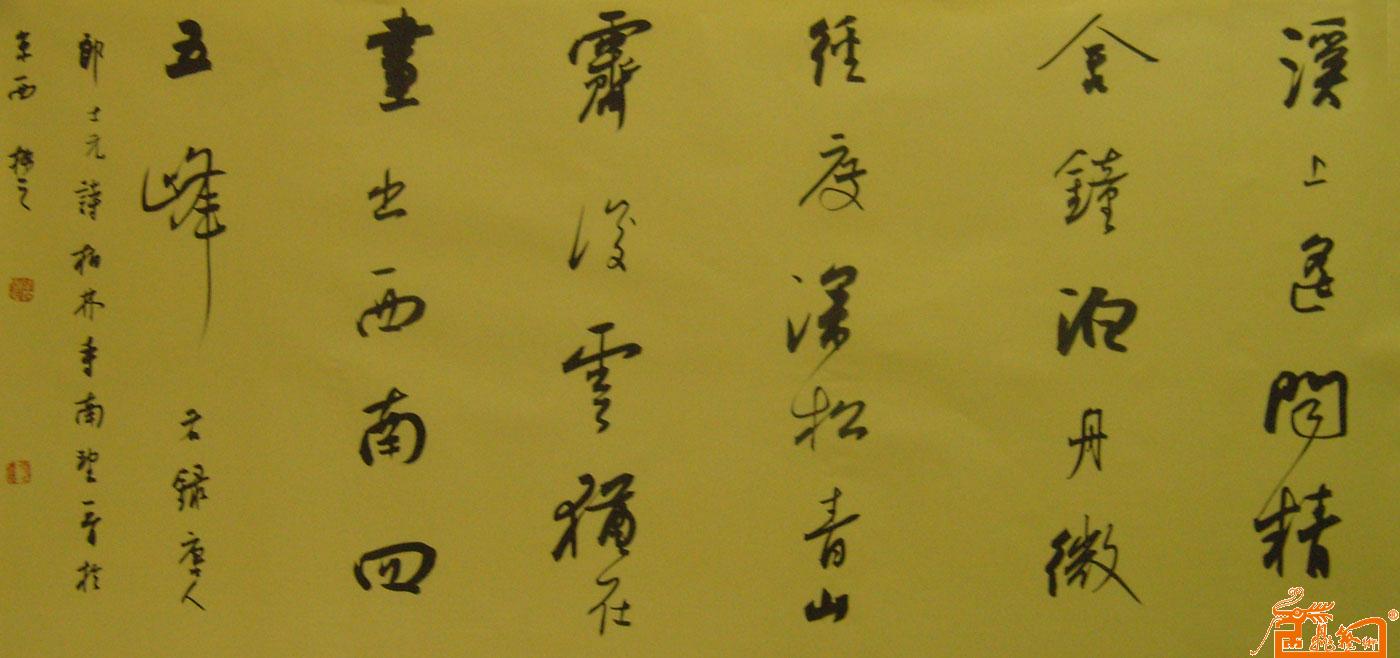 溪上遙聞精
舍鐘泊舟微
徑度深松青山
霽後雲猶在
畫出西南四
五峰 右錄唐人
郎士元詩柏林寺南望一首於
京西